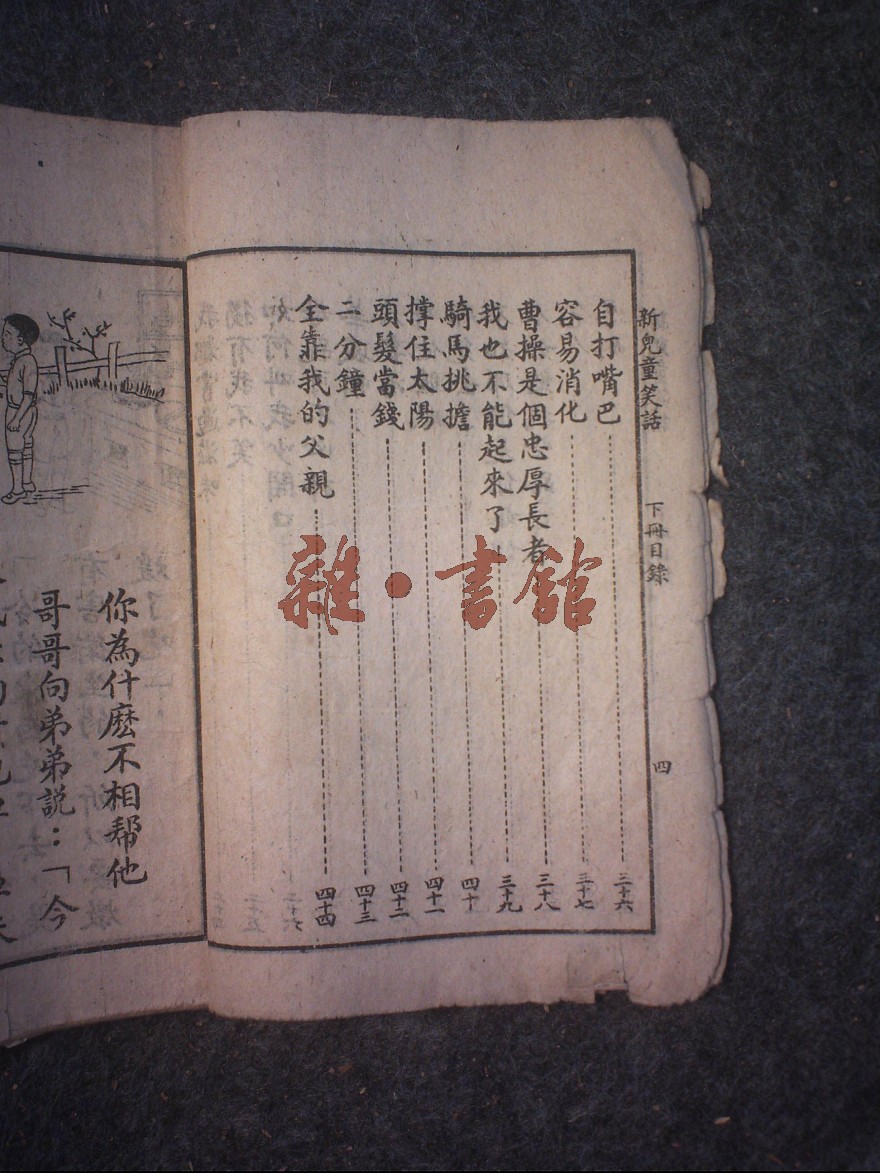 新兒童笑話 下冊目錄 四
自打嘴巴 三十六
容易消化 三十七
曹操是個忠厚長者 三十八
我也不能起來了 三十九
騎馬挑擔 四十
撑住太陽 四十一
頭髮當錢 四十二
二分鐘 四十三
全靠我的父親 四十四
雜·書館
你為什麽不相帮他
哥哥向弟弟説：「今